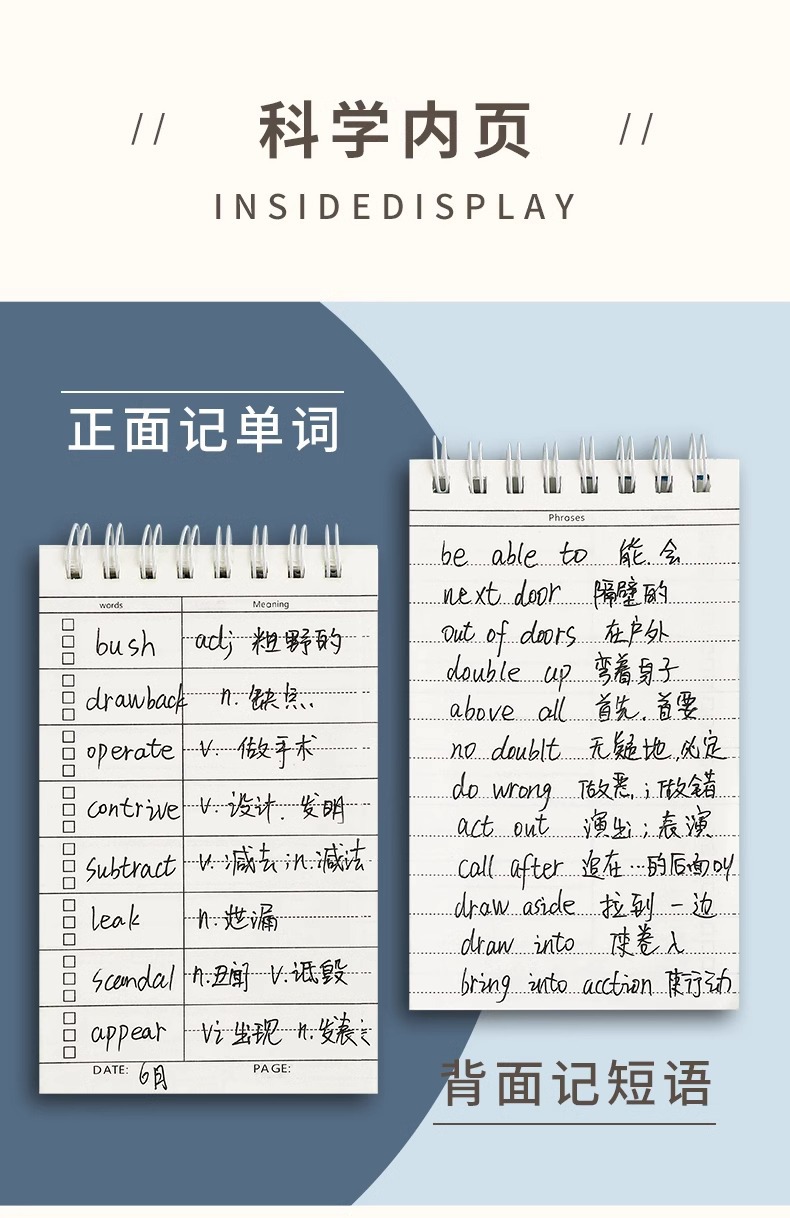 // 科学内页 //
INSIDEDISPLAY
正面记单词
words Meaning
bush adj 粗野的
drawback n. 缺点.
operate v. 做手术
contrive v. 设计. 发明
subtract v. 减去;n.减法
leak n. 泄漏
scandal n.丑闻 v.诋毁
appear vi 出现 n.
DATE: 6月 PAGE:
Phrases
be able to 能.会
next door 隔壁的
out of doors 在户外
double up 弯着身子
above all 首先.首要
no doublt 无疑地,必定
do wrong 做恶;做错
act out 演出;表演
call after 追在…的后面叫
draw aside 拉到一边
draw into 使卷入
bring into acction 使行动
背面记短语